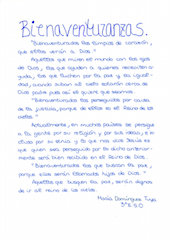 Bienaventuranzas.
"Bienaventurados los limpios de corazón,
que ellos verán a Dios."
Aquellos que miren el mundo con los ojos
de Dios, los que ayuden a quienes necesitan a-
yuda, los que luchen por la paz y la igual-
dad, cuando suban al cielo estarán cerca de Dios
padre pues así él quiere que seamos.
"Bienaventurados los perseguidos por causa
de la justicia, porque de ellos es el Reino de los
cielos."
Actualmente, en muchos países se persigue
a la gente por su religión y por sus ideas, o su
por su etnia y lo que nos dice Jesús es
que quien sea perseguido por lo dicho anterior-
mente será bien recibido en el Reino de Dios.
"Bienaventurados los que trabajan por la paz,
porque ellos serán llamados hijos de Dios."
Aquellos que busquen la paz, serán dignos
de ir al reino de los cielos.
María Domínguez
3º E.S.O